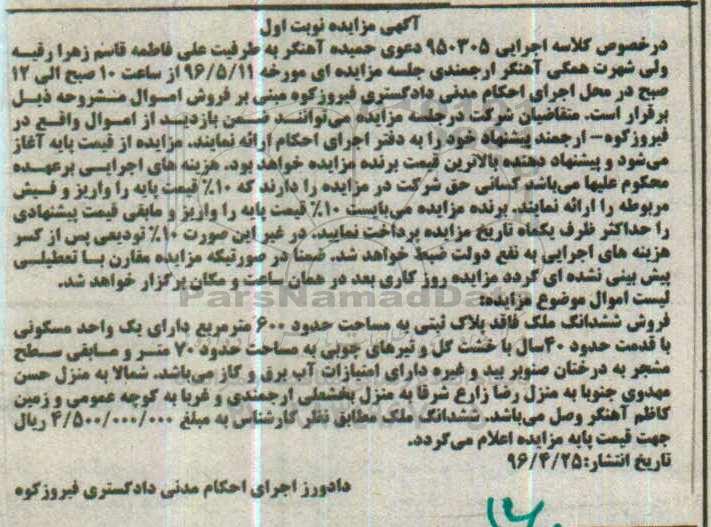 آگهی مزایده نوبت اول
درخصوص کلاسه اجرایی ۹۵۰۳۰۵ دعوی حمیده آهنگر به طرفیت علی فاطمه قاسم زهرا رقیه
ولی شهرت همگی آهنگر ارجمندی جلسه مزایده ای مورخه ۹۶/۵/۱۱ از ساعت ۱۰ صبح الی ۱۲
صبح در محل اجرای احکام مدنی دادگستری فیروزکوه مبنی بر فروش اموال مشروحه ذیل
برقرار است. متقاضیان شرکت درجلسه مزایده می‌توانند ضمن بازدید از اموال واقع در
فیروزکوه- ارجمند پیشنهاد خود را به دفتر اجرای احکام ارائه نمایند. مزایده از قیمت پایه آغاز
می‌شود و پیشنهاد دهنده بالاترین قیمت برنده مزایده خواهد بود. هزینه های اجرایی برعهده
محکوم علیها می‌باشد کسانی حق شرکت در مزایده را دارند که ۱۰٪ قیمت پایه را واریز و فیش
مربوطه را ارائه نمایند. برنده مزایده می‌بایست ۱۰٪ قیمت پایه را واریز و مابقی قیمت پیشنهادی
را حداکثر ظرف یکماه تاریخ مزایده پرداخت نمایید. در غیر این صورت ۱۰٪ تودیعی پس از کسر
هزینه های اجرایی به نفع دولت ضبط خواهد شد. ضمنا در صورتیکه مزایده مقارن با تعطیلی
پیش بینی نشده ای گردد مزایده روز کاری بعد در همان ساعت و مکان برگزار خواهد شد.
لیست اموال موضوع مزایده:
فروش ششدانگ ملک فاقد پلاک ثبتی به مساحت حدود ۶۰۰ مترمربع دارای یک واحد مسکونی
با قدمت حدود ۴۰سال با خشت گل و تیرهای چوبی به مساحت حدود ۷۰ متر و مابقی سطح
مشجر به درختان صنوبر بید و غیره دارای امتیازات آب برق و گاز می‌باشد. شمالا به منزل حسن
مهدوی جنوبا به منزل رضا زارع شرقا به منزل بخشعلی ارجمندی و غربا به کوچه عمومی و زمین
کاظم آهنگر وصل می‌باشد. ششدانگ ملک مطابق نظر کارشناس به مبلغ ۴/۵۰۰/۰۰۰/۰۰۰ ریال
جهت قیمت پایه مزایده اعلام می‌گردد.
تاریخ انتشار:۹۶/۴/۲۵
دادورز اجرای احکام مدنی دادگستری فیروزکوه
ParsNamadData